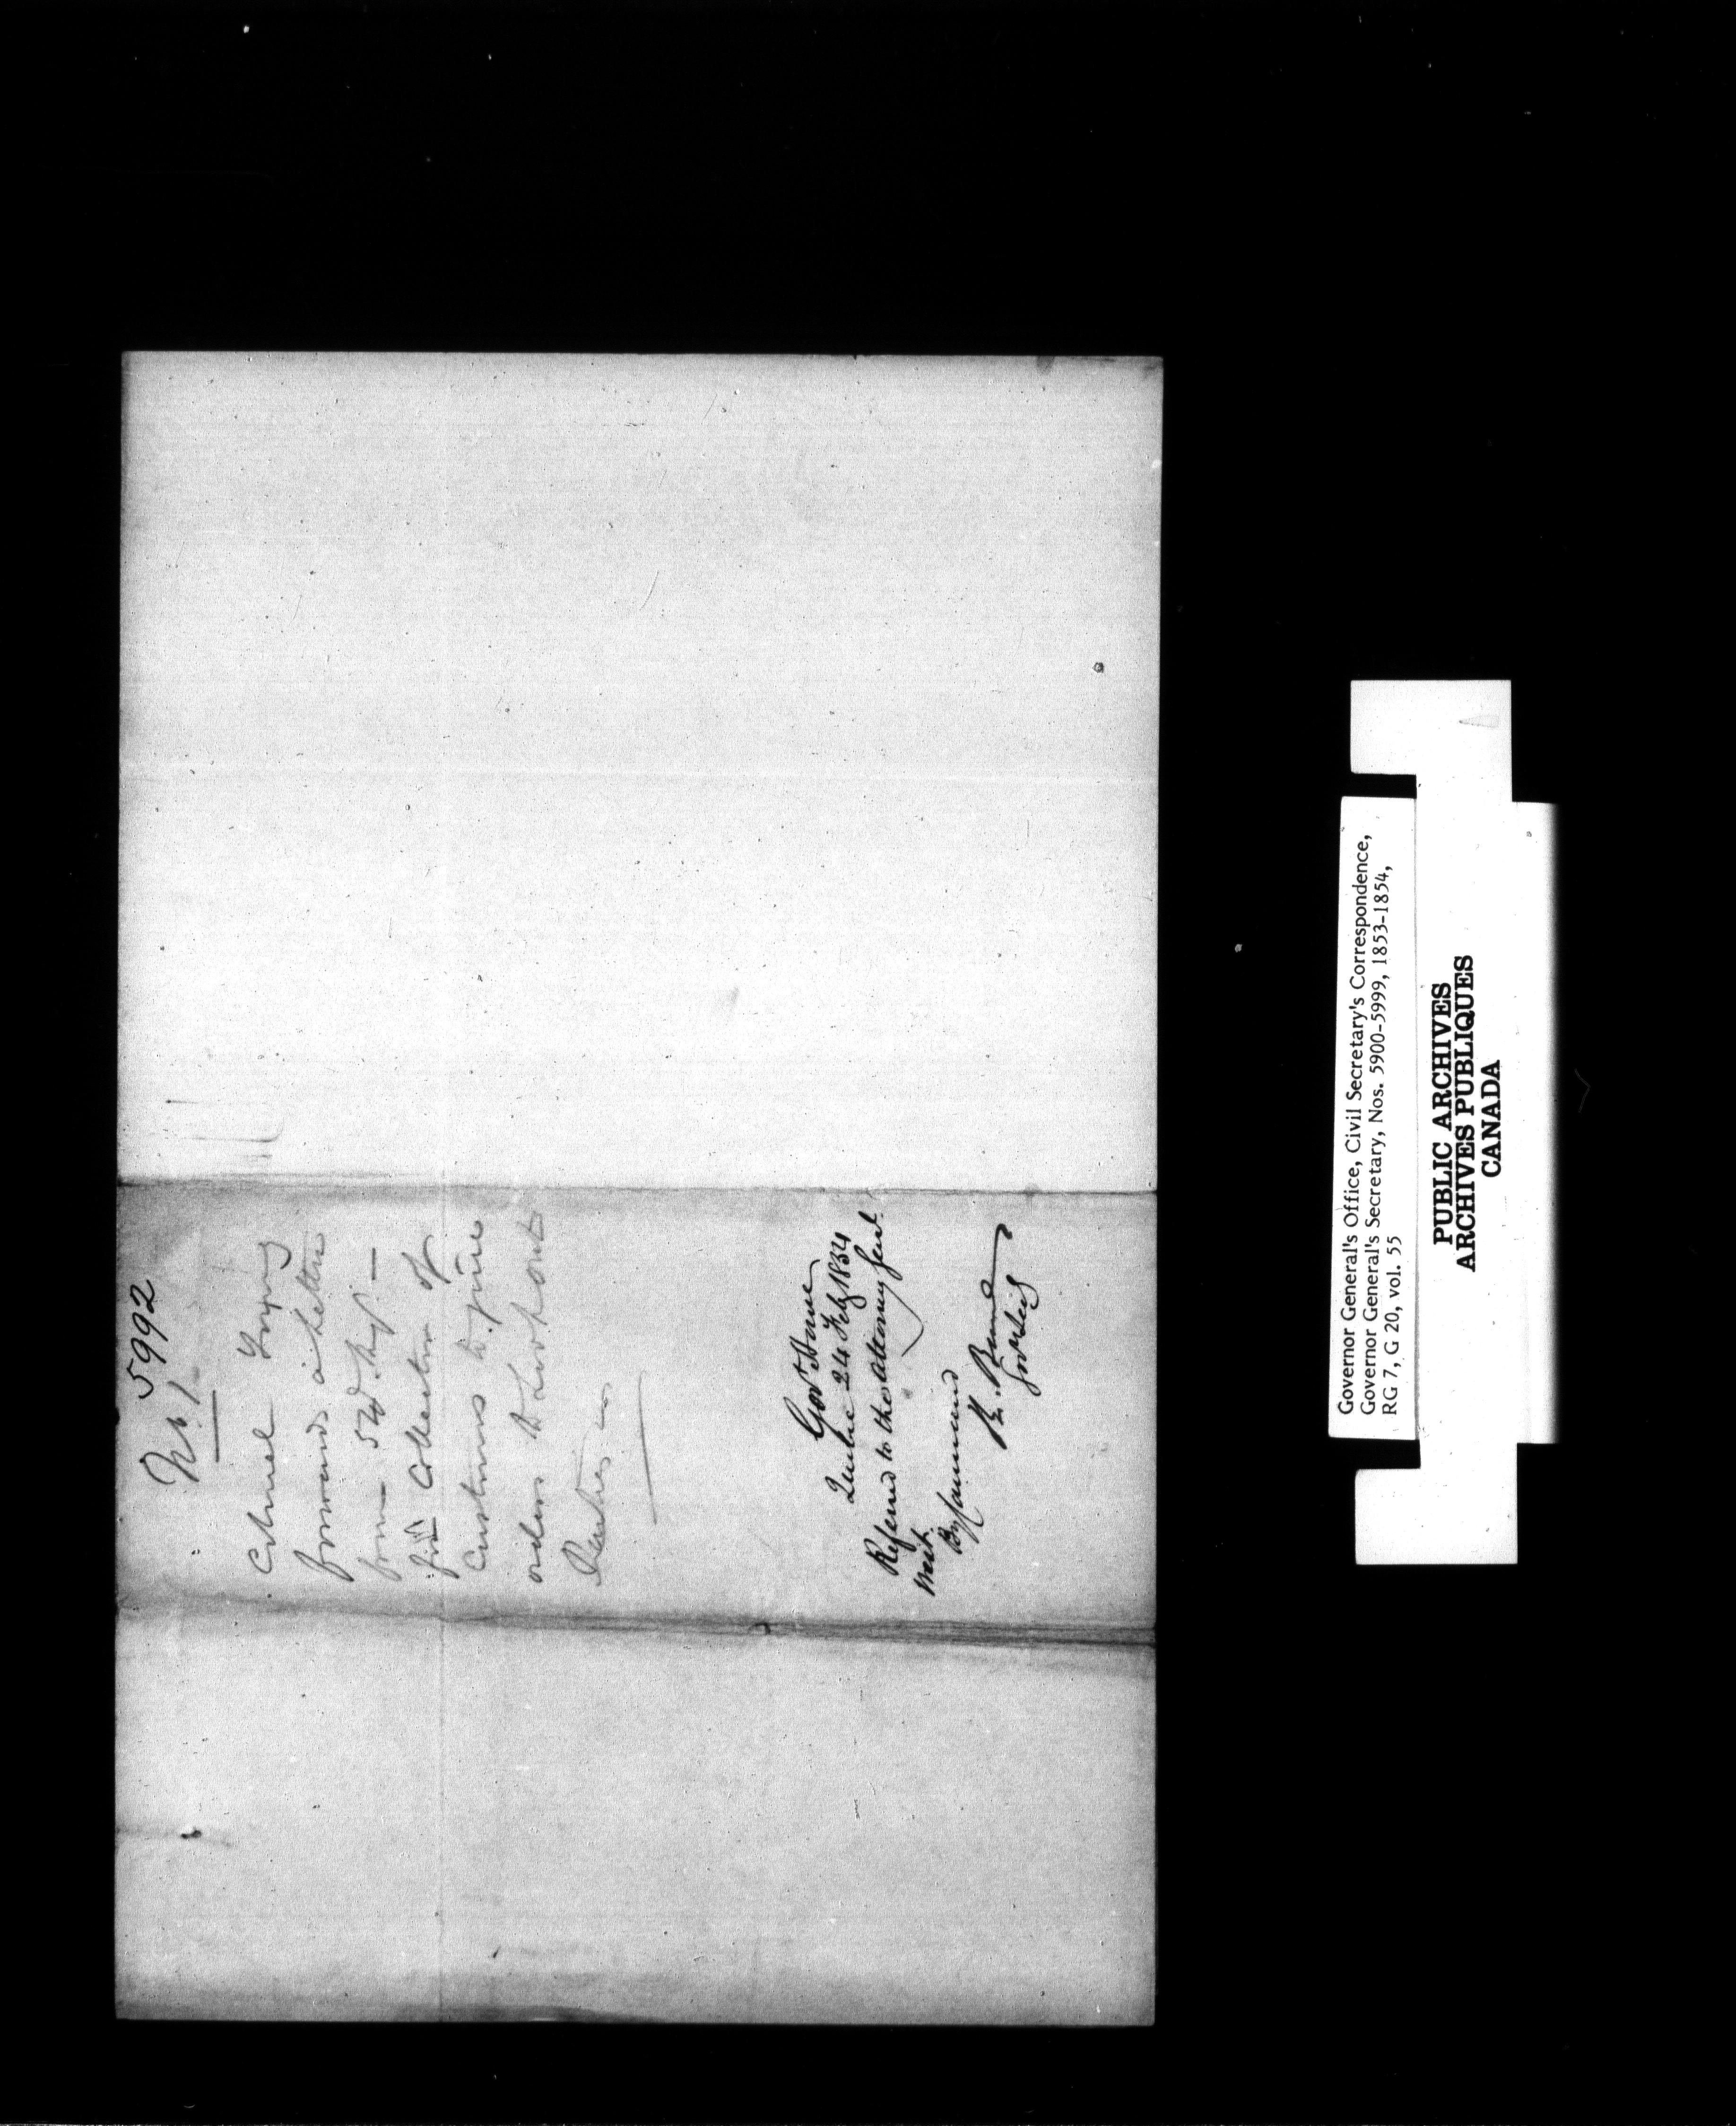 5992
No. 1.
Colonel Young
forwards a letter
from
for Collector of
Customs to give
orders to
Govt House
Quebec 24 Feby 1854
Referred to the Attorney Genl.
West.
By Command
Governor General's Office, Civil Secretary's Correspondence,
Governor General's Secretary, Nos. 5900-5999, 1853-1854,
RG 7, G 20, vol. 55
PUBLIC ARCHIVES
ARCHIVES PUBLIQUES
CANADA